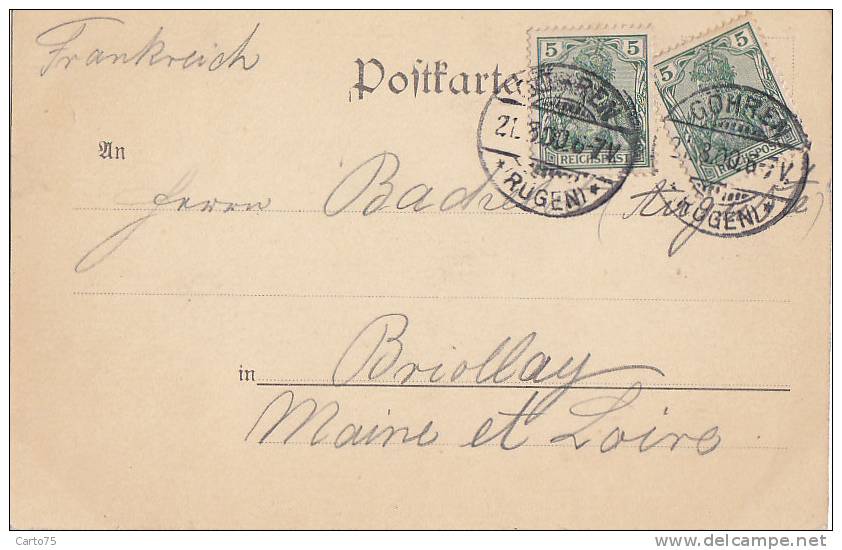 Frankreich
Postkarte
5 5
REICHSPOST
5 5
REICHSPOST
GÖHREN
21. 8.00. 6-7V.
* (RÜGEN) *
GÖHREN
6-7V.
* (RÜGEN) *
An
Herrn
in Briollay
Maine et Loire
Carto75
www.delcampe.net